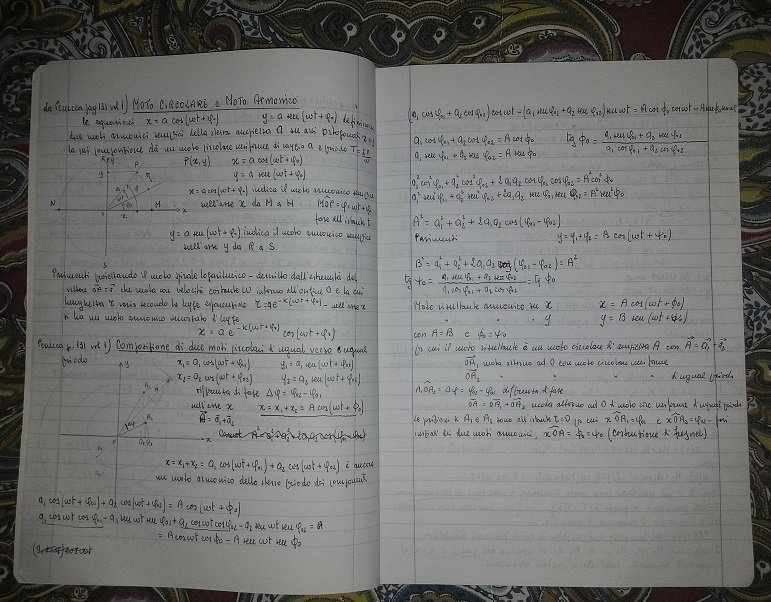 da Perucca pag 131 vol 1) MOTO CIRCOLARE e MOTO ARMONICO
le equazioni x = a cos(ωt+φ₀) y = a sen(ωt+φ₀) definiscono
due moti armonici semplici della stessa ampiezza a su assi ortogonali x e y
la cui composizione dà un moto circolare uniforme di raggio a e periodo T = 2π/ω
P(x,y) x = a cos(ωt+φ₀)
y = a sen(ωt+φ₀)
x = a cos(ωt+φ₀) indica il moto armonico semplice
sull'asse x da M a N MÔP = φ = ωt+φ₀
fase all'istante t
y = a sen(ωt+φ₀) indica il moto armonico semplice
sull'asse y da R a S.
Parimenti proiettando il moto spirale logaritmico - descritto dall'estremità del
vettore OA = r che ruota con velocità costante ω intorno all'origine O e la cui
lunghezza r varia secondo la legge esponenziale r = a e^-k(ωt+φ₀) - sull'asse x
si ha un moto armonico smorzato di legge
x = a e^-k(ωt+φ₀) cos(ωt+φ₀)
Perucca p. 131 vol 1) Composizione di due moti circolari di ugual verso e ugual
periodo
x₁ = a₁ cos(ωt+φ₀₁) y₁ = a₁ sen(ωt+φ₀₁)
x₂ = a₂ cos(ωt+φ₀₂) y₂ = a₂ sen(ωt+φ₀₂)
differenza di fase Δφ = φ₀₂ - φ₀₁
sull'asse x x = x₁+x₂ = A cos(ωt+ϕ₀)
A = a₁+a₂
x = x₁+x₂ = a₁ cos(ωt+φ₀₁) + a₂ cos(ωt+φ₀₂) è ancora
un moto armonico dello stesso periodo dei componenti
a₁ cos(ωt+φ₀₁) + a₂ cos(ωt+φ₀₂) = A cos(ωt+ϕ₀)
a₁ cosωt cosφ₀₁ - a₁ senωt senφ₀₁ + a₂ cosωt cosφ₀₂ - a₂ senωt senφ₀₂ =
= A cosωt cosϕ₀ - A senωt senϕ₀
(a₁ cosφ₀₁ + a₂ cosφ₀₂) cosωt - (a₁ senφ₀₁ + a₂ senφ₀₂) senωt = A cosϕ₀ cosωt - A senϕ₀ senωt
a₁ cosφ₀₁ + a₂ cosφ₀₂ = A cosϕ₀ tg ϕ₀ = (a₁ senφ₀₁ + a₂ senφ₀₂) / (a₁ cosφ₀₁ + a₂ cosφ₀₂)
a₁ senφ₀₁ + a₂ senφ₀₂ = A senϕ₀
a₁² cos²φ₀₁ + a₂² cos²φ₀₂ + 2a₁a₂ cosφ₀₁ cosφ₀₂ = A² cos²ϕ₀
a₁² sen²φ₀₁ + a₂² sen²φ₀₂ + 2a₁a₂ senφ₀₁ senφ₀₂ = A² sen²ϕ₀
A² = a₁² + a₂² + 2a₁a₂ cos(φ₀₁-φ₀₂)
Parimenti y = y₁+y₂ = B cos(ωt+ψ₀)
B² = a₁² + a₂² + 2a₁a₂ cos(φ₀₁-φ₀₂) = A²
tg ψ₀ = (a₁ senφ₀₁ + a₂ senφ₀₂) / (a₁ cosφ₀₁ + a₂ cosφ₀₂) = tg ϕ₀
Moto risultante armonico su x x = A cos(ωt+ϕ₀)
" " " y y = B sen(ωt+ψ₀)
con A = B e ϕ₀ = ψ₀
per cui il moto risultante è un moto circolare di ampiezza A con A = a₁+a₂
OA₁ ruota attorno ad O con moto circolare uniforme
OA₂ " di ugual periodo
A₁ÔA₂ = Δφ = φ₀₂ - φ₀₁ differenza di fase
OA = OA₁ + OA₂ ruota attorno ad O di moto circ. uniforme di ugual periodo
le posizioni di A₁ e A₂ sono all'istante t=0 per cui xÔA₁ = φ₀₁ e xÔA₂ = φ₀₂ - fasi
iniziali dei due moti armonici, xÔA = ϕ₀ = ψ₀ (costruzione di Fresnel)